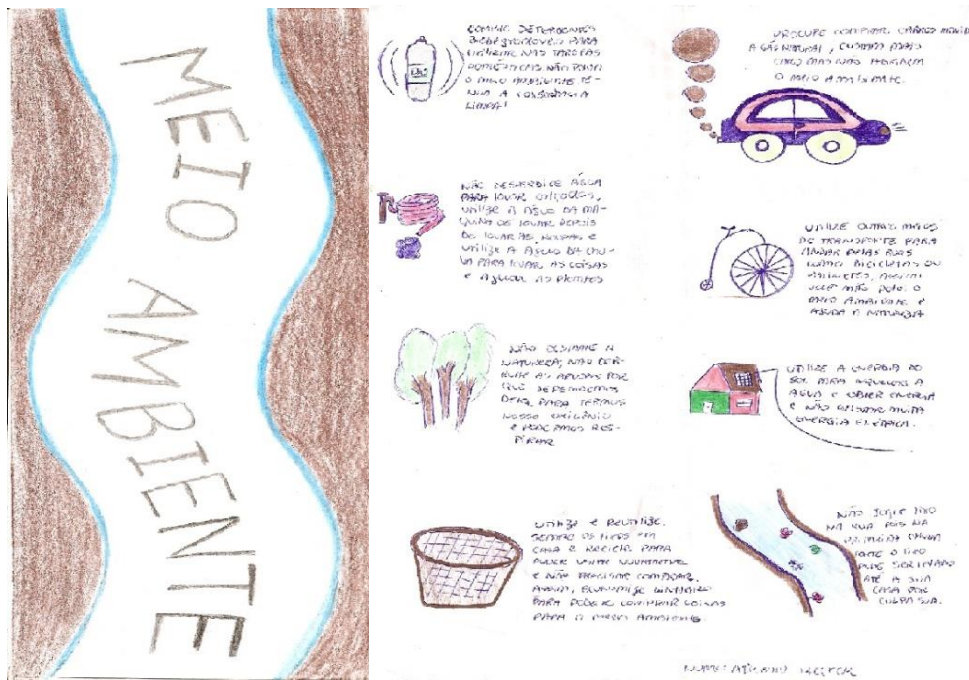 MEIO AMBIENTE
COMPRE DETERGENTES
BIODEGRADÁVEIS PARA
UTILIZAR NAS TAREFAS
DOMÉSTICAS NÃO POLUA
O MEIO AMBIENTE TE-
NHA A CONSCIÊNCIA
LIMPA!
NÃO DESPERDICE ÁGUA
PARA LAVAR CALÇADAS,
UTILIZE A ÁGUA DA MÁ-
QUINA DE LAVAR DEPOIS
DE LAVAR AS ROUPAS E
UTILIZE A ÁGUA DA CHU-
VA PARA LAVAR AS COISAS
E AGUAR AS PLANTAS
NÃO DESMATE A
NATUREZA, NÃO DER-
RUBE AS ÁRVORES POR
QUE DEPENDEMOS
DELA PARA TERMOS
NOSSO OXIGÊNIO
E PODERMOS RES-
PIRAR
UTILIZE E REUTILIZE
SEMPRE OS LIXOS EM
CASA E RECICLE PARA
PODER USAR NOVAMENTE
E NÃO PRECISAR COMPRAR,
ASSIM, ECONOMIZE DINHEIRO
PARA PODER COMPRAR COISAS
PARA O MEIO AMBIENTE.
PROCURE COMPRAR CARROS
A GÁS NATURAL, CUSTAM MAIS
CARO MAS NÃO
O MEIO AMBIENTE.
UTILIZE OUTROS MEIOS
DE TRANSPORTE PARA
ANDAR PELAS RUAS
COMO BICICLETAS OU
ASSIM
VOCÊ NÃO POLUI O
MEIO AMBIENTE E
AJUDA A NATUREZA
UTILIZE A ENERGIA DO
SOL PARA AQUECER A
ÁGUA E OBTER ENERGIA
E NÃO GASTAR MUITA
ENERGIA ELÉTRICA.
NÃO JOGUE LIXO
NA RUA POIS NA
PRIMEIRA CHUVA
FORTE O LIXO
PODE SER LEVADO
ATÉ A SUA
CASA POR
CULPA SUA.
NOME: